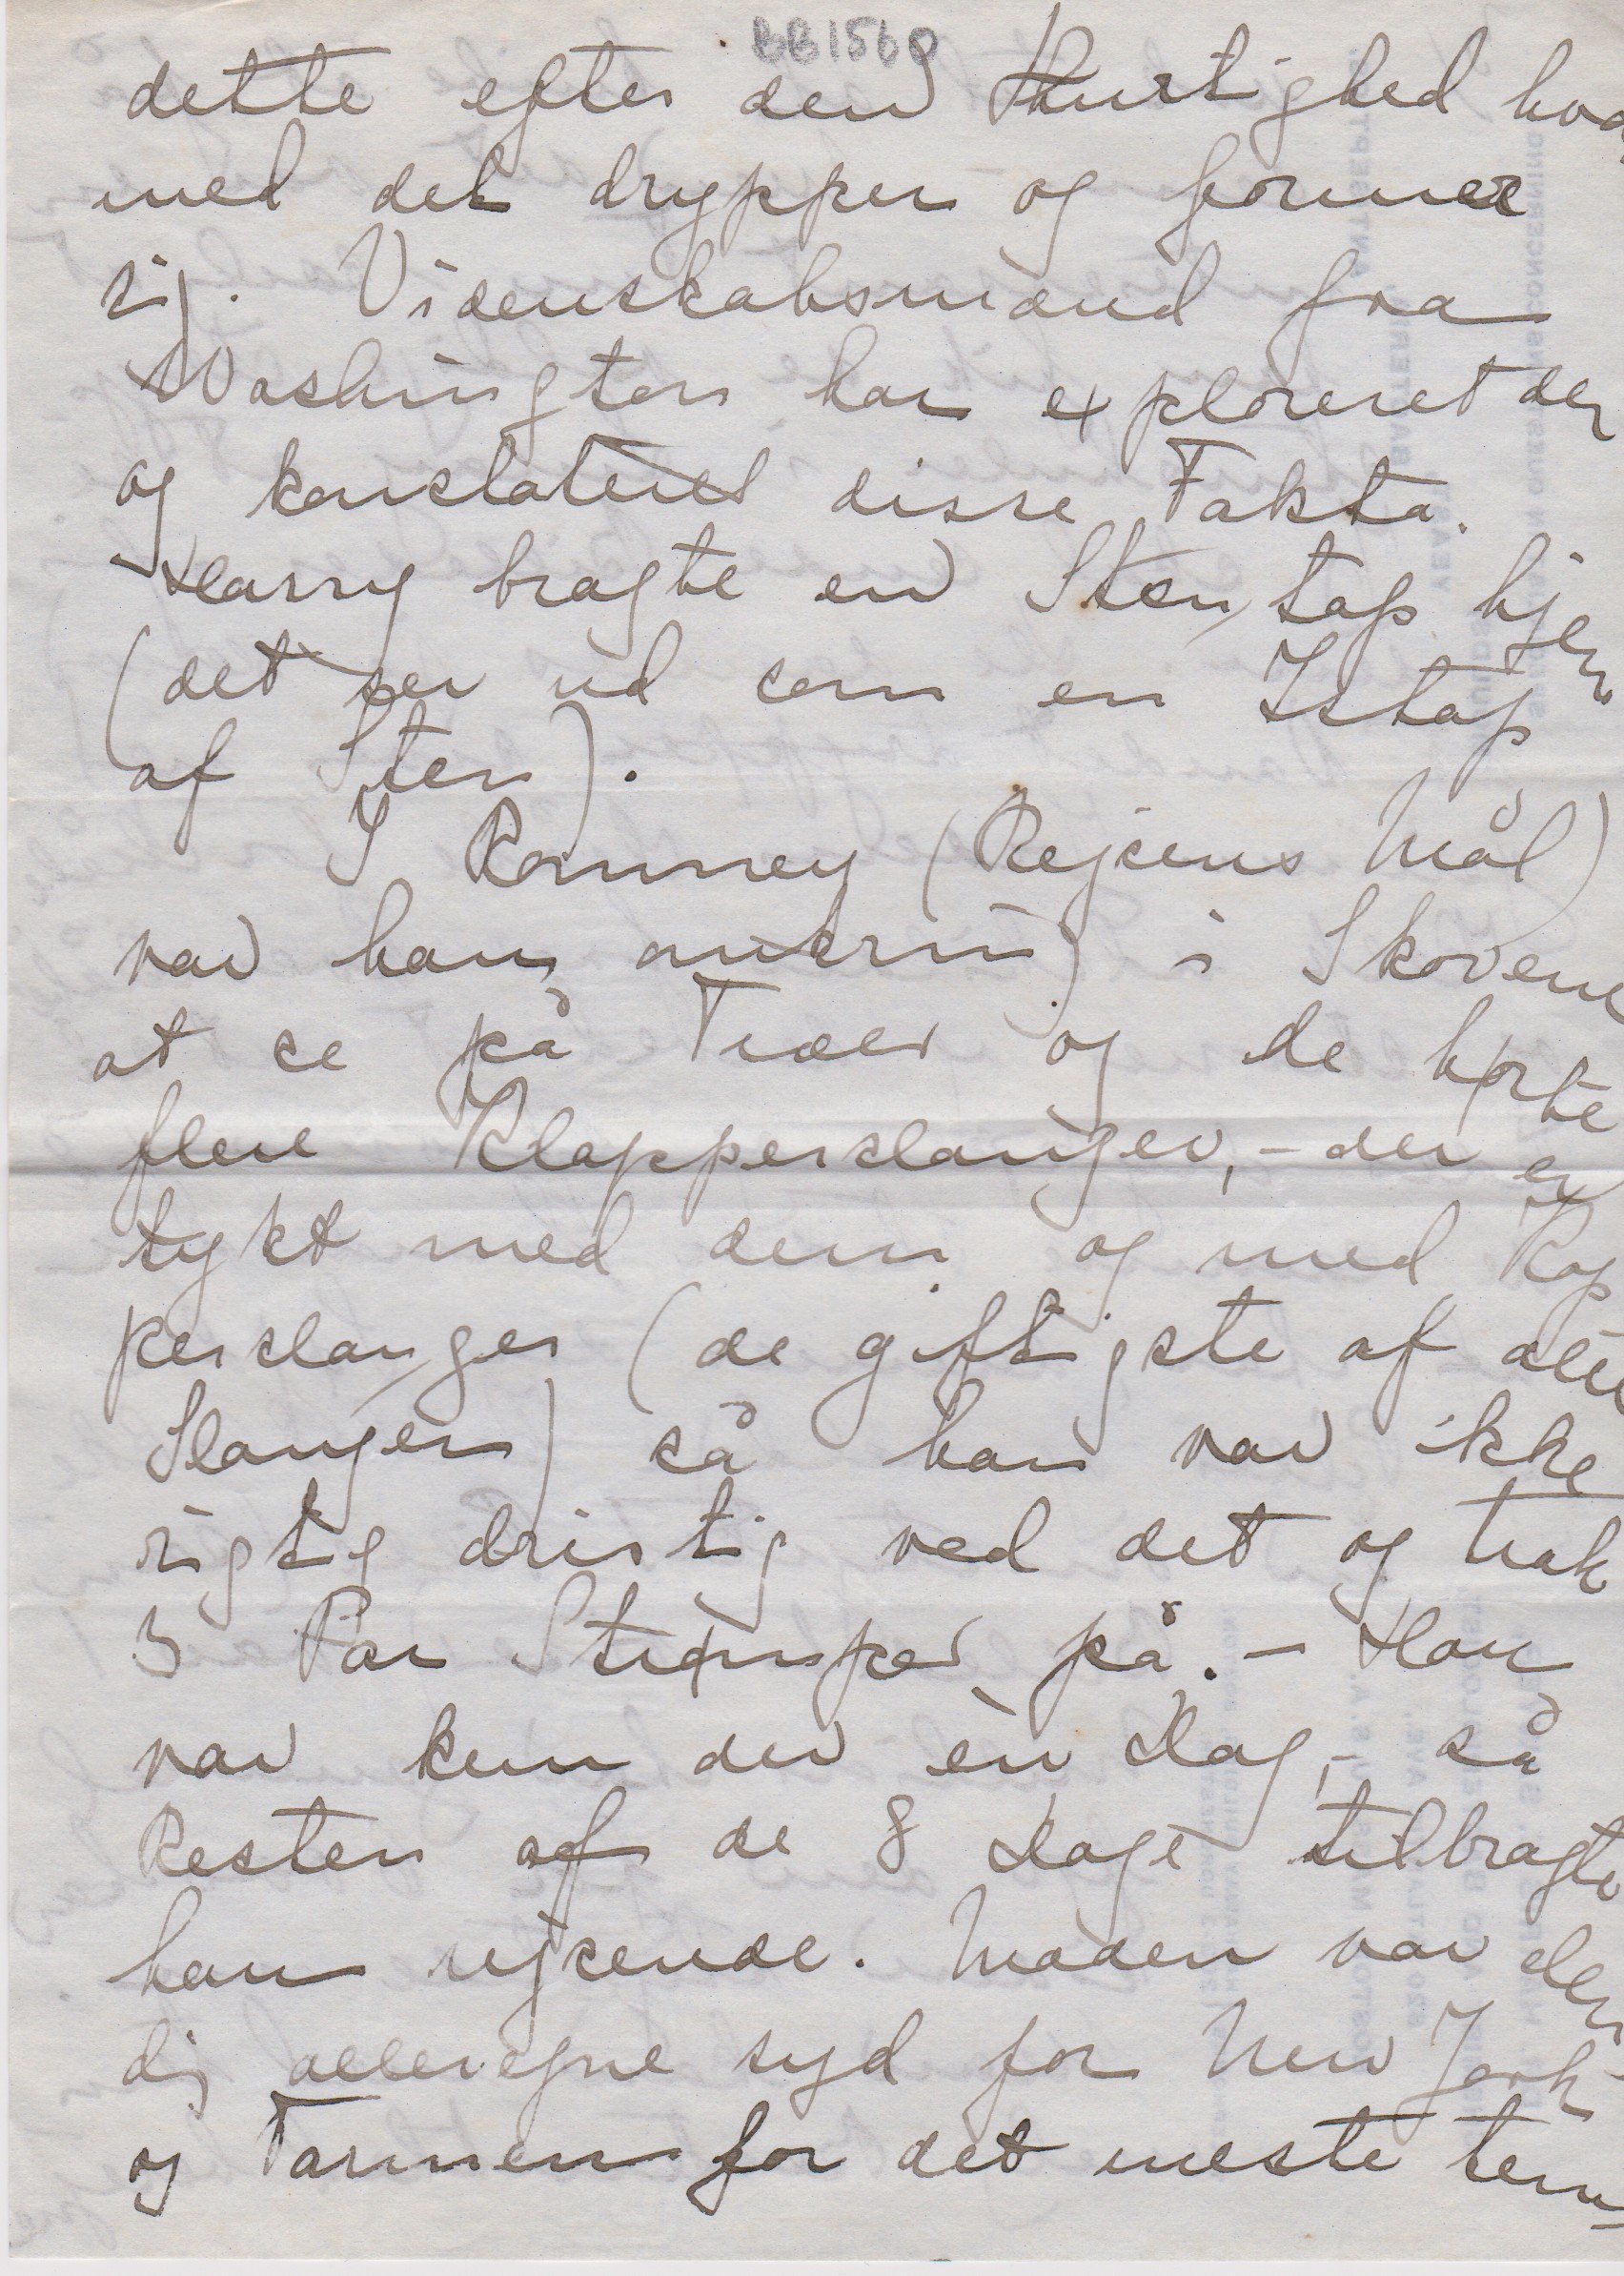 BB1560
dette efter den Hurtighed hvor
med det drypper og former
sig. Videnskabsmænd fra
Washington har exploreret der
og konstateret disse Fakta.
Harry bragte en Sten, tap hjem
(det ser ud som en Istap
af Sten).
I Romney (Rejsens Mål)
var han omkring i Skovene
at se på Træer og de hørte
flere Klapperslanger, - der er
tykt med dem og med Kop
perslanger (de giftigste af alle
Slanger) så han var ikke
rigtig dristig ved det og trak
3 Par Strømper på. - Han
var kun der èn Dag, - så
Resten af de 8 Dage tilbragte
han rejsende. Maden var elen
dig allevegne syd for New York
og Varmen for det meste tem